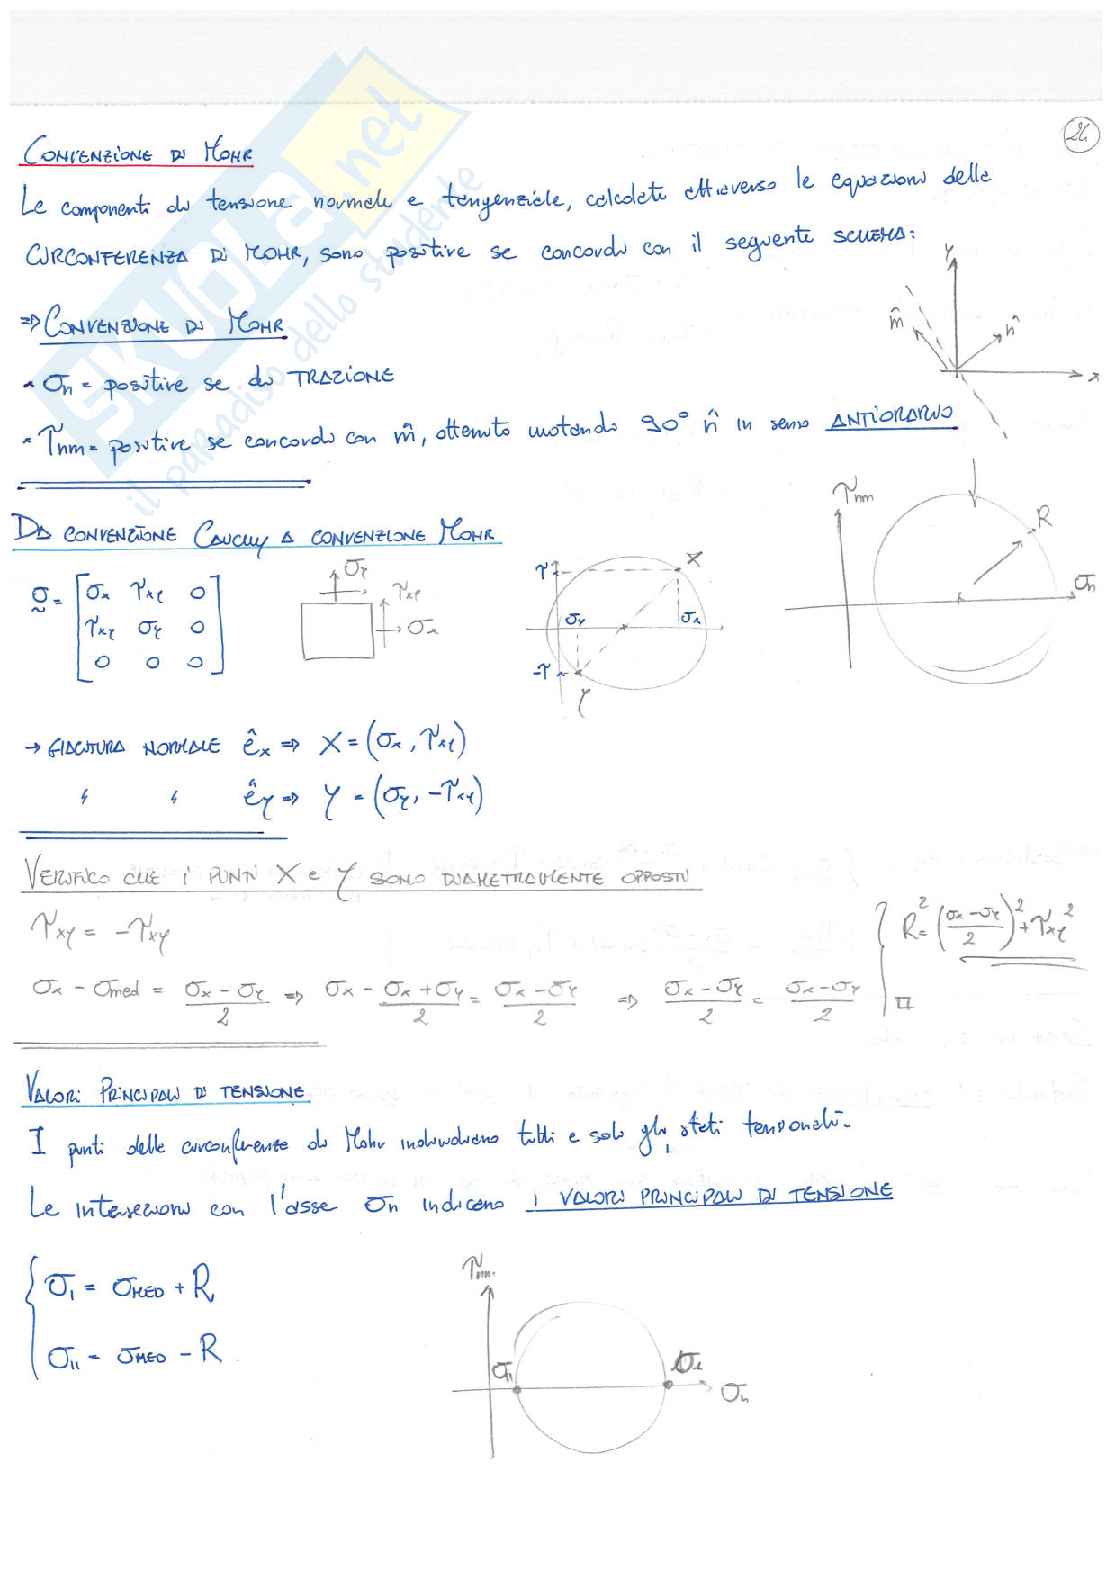 24
CONVENZIONE DI MOHR
Le componenti di tensione normale e tangenziale, calcolate attraverso le equazioni della
CIRCONFERENZA DI MOHR, sono positive se concordi con il seguente SCHEMA:
y
m̂ n̂
x
⇒ CONVENZIONE DI MOHR
• σn = positive se di TRAZIONE
• τnm = positive se concordi con m̂, ottenuto ruotando 90° n̂ in senso ANTIORARIO
DA CONVENZIONE CAUCHY A CONVENZIONE MOHR
σ = [σx τxy 0
τxy σy 0
0 0 0]
σy τxy σx
τ X
σy σx
-τ Y
τnm R σn
→ GIACITURA NORMALE êx ⇒ X = (σx, τxy)
" " êy ⇒ Y = (σy, -τxy)
VERIFICO CHE I PUNTI X e Y SONO DIAMETRALMENTE OPPOSTI
τxy = -τxy
σx - σmed = (σx - σy)/2 ⇒ σx - (σx + σy)/2 = (σx - σy)/2 ⇒ (σx - σy)/2 = (σx - σy)/2
R² = ((σx - σy)/2)² + τxy²
VALORI PRINCIPALI DI TENSIONE
I punti della circonferenza di Mohr individuano tutti e solo gli stati tensionali.
Le intersezioni con l'asse σn indicano i VALORI PRINCIPALI DI TENSIONE
{ σI = σMED + R
σII = σMED - R
τnm
σII σI σn
SKUOLA.net
il paradiso dello studente